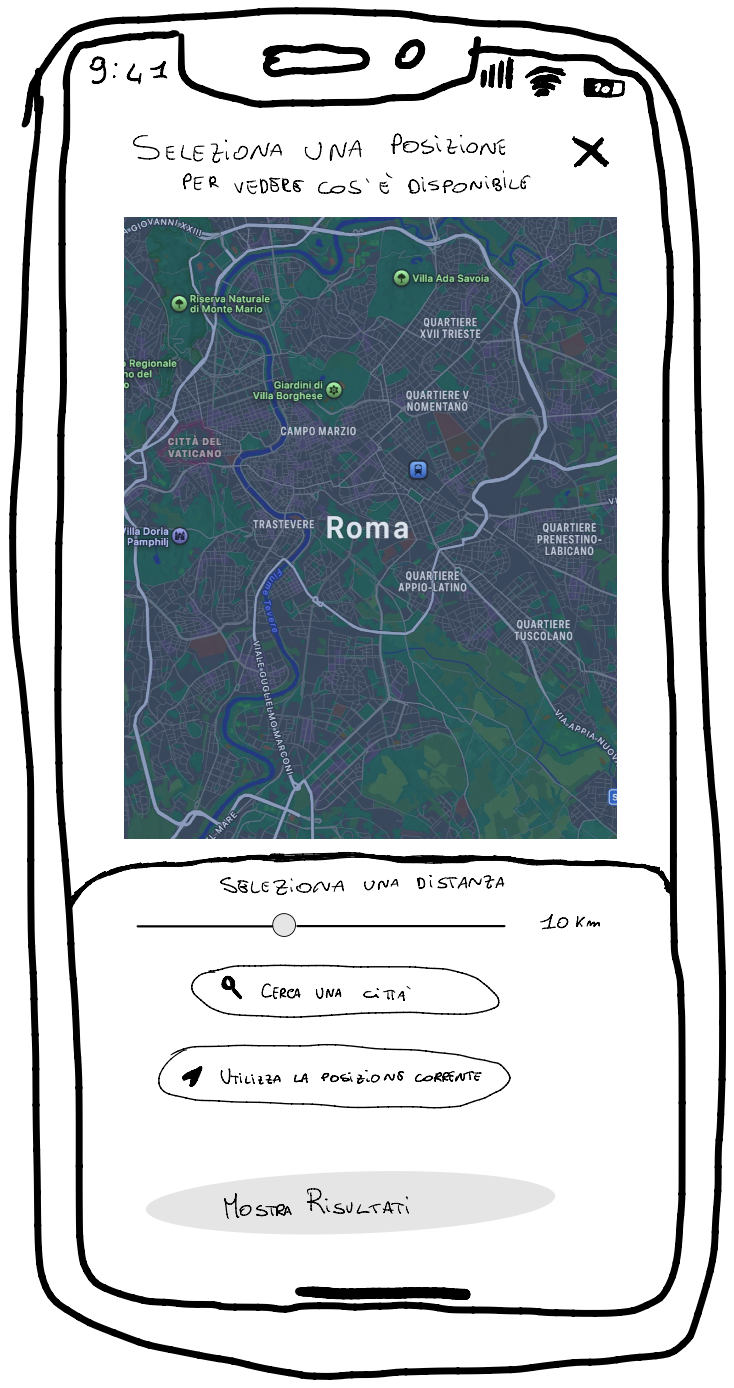 9:41
SELEZIONA UNA POSIZIONE
PER VEDERE COS'È DISPONIBILE
A-GIOVANNI-XXIII
Villa Ada Savoia
Riserva Naturale
di Monte Mario
QUARTIERE
XVII TRIESTE
Regionale
no del
o
Giardini di
Villa Borghese
QUARTIERE V
NOMENTANO
CAMPO MARZIO
CITTÀ DEL
VATICANO
TRASTEVERE
Roma
Villa Doria
Pamphilj
QUARTIERE
PRENESTINO-
LABICANO
QUARTIERE
APPIO-LATINO
Fiume Tevere
QUARTIERE
TUSCOLANO
VIALE-GUGLIELMO-MARCONI
VIA-APPIA-NUOV
EL-MARE
SELEZIONA UNA DISTANZA
10 Km
CERCA UNA CITTÀ
UTILIZZA LA POSIZIONE CORRENTE
MOSTRA RISULTATI